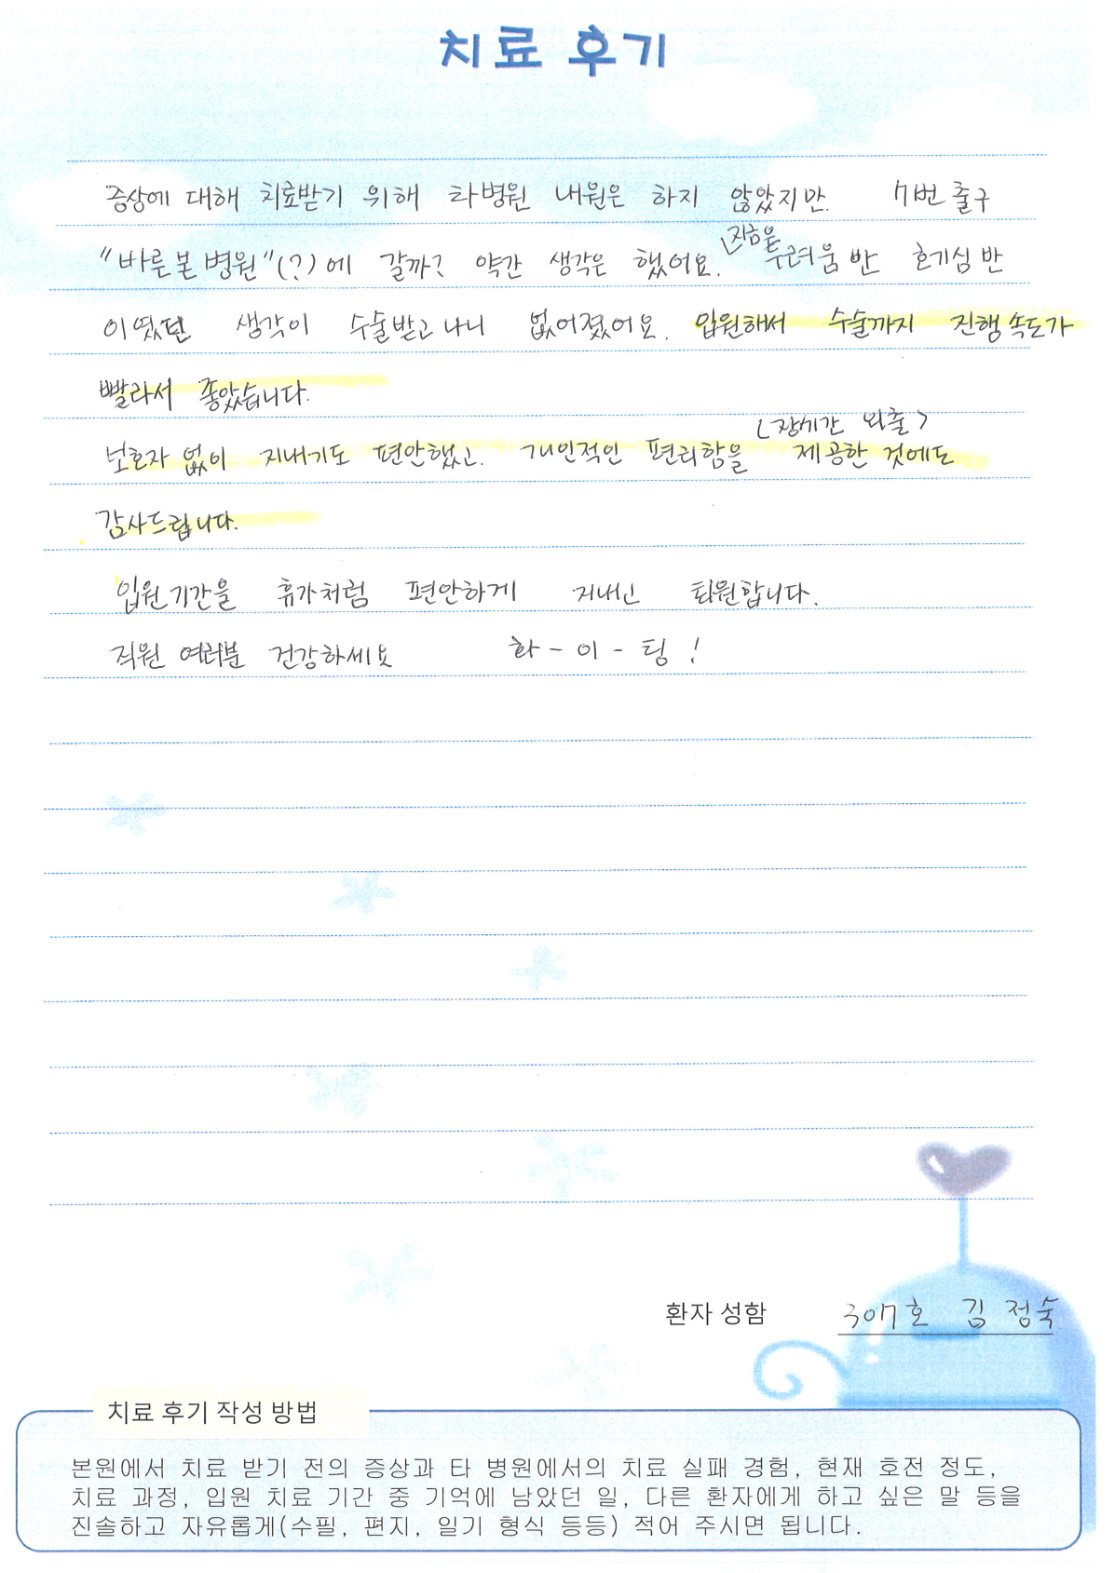 치료 후기
증상에 대해 치료받기 위해 타병원 내원은 하지 않았지만. 7번 출구
"바른본병원"(?)에 갈까? 약간 생각은 했어요. 지금은 두려움 반 호기심 반
이였던 생각이 수술받고 나니 없어졌어요. 입원해서 수술까지 진행속도가
빨라서 좋았습니다.
<장시간 외출>
보호자 없이 지내기도 편안했고. 개인적인 편리함을 제공한 것에도
감사드립니다.
입원기간을 휴가처럼 편안하게 지내고 퇴원합니다.
직원 여러분 건강하세요 화-이-팅!
환자 성함 307호 김정숙
치료 후기 작성 방법
본원에서 치료 받기 전의 증상과 타 병원에서의 치료 실패 경험, 현재 호전 정도,
치료 과정, 입원 치료 기간 중 기억에 남았던 일, 다른 환자에게 하고 싶은 말 등을
진솔하고 자유롭게(수필, 편지, 일기 형식 등등) 적어 주시면 됩니다.